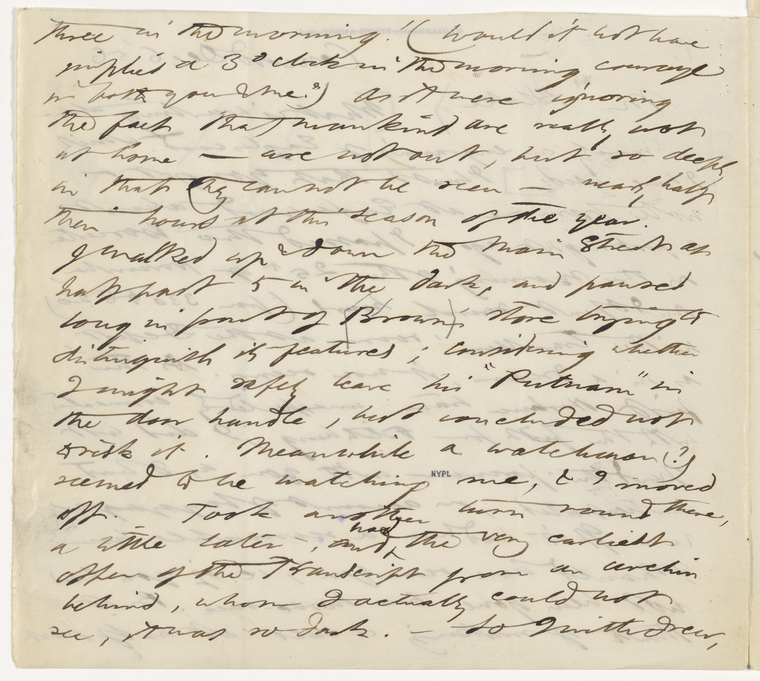 three in the morning. (Would it not have
implied a 3 o'clock in the morning courage
in both you & me?) As it were ignoring
the fact that mankind are really not
at home — are not out, but so deeply
in that they cannot be seen — nearly half
their hours at this season of the year.
I walked up & down the Main Street at
half past 5 in the dark, and paused
long in front of Brown's store trying to
distinguish its features; considering whether
I might safely leave his "Putnam" in
the door handle, but concluded not
to risk it. Meanwhile a watchman (?)
seemed to be watching me, & I moved
off. Took another turn round there,
a little later, and had the very earliest
offer of the Transcript from an urchin
behind, whom I actually could not
see, it was so dark. — So I withdrew,
NYPL